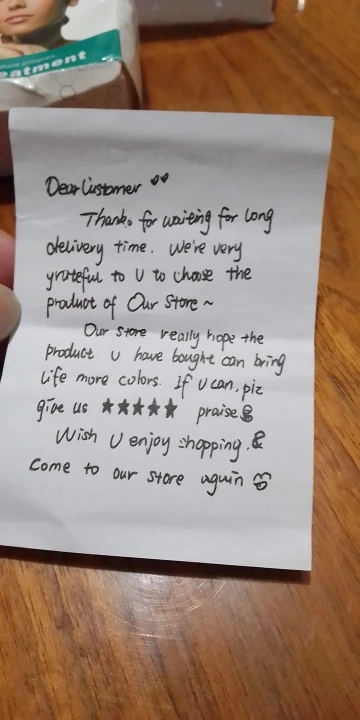 eatment
Dear Customer
Thanks for waiting for long
delivery time. We're very
grateful to U to choose the
product of Our Store ~
Our store really hope the
product u have bought can bring
life more colors. If u can, plz
give us ★★★★★ praise
Wish U enjoy shopping.
Come to our store again